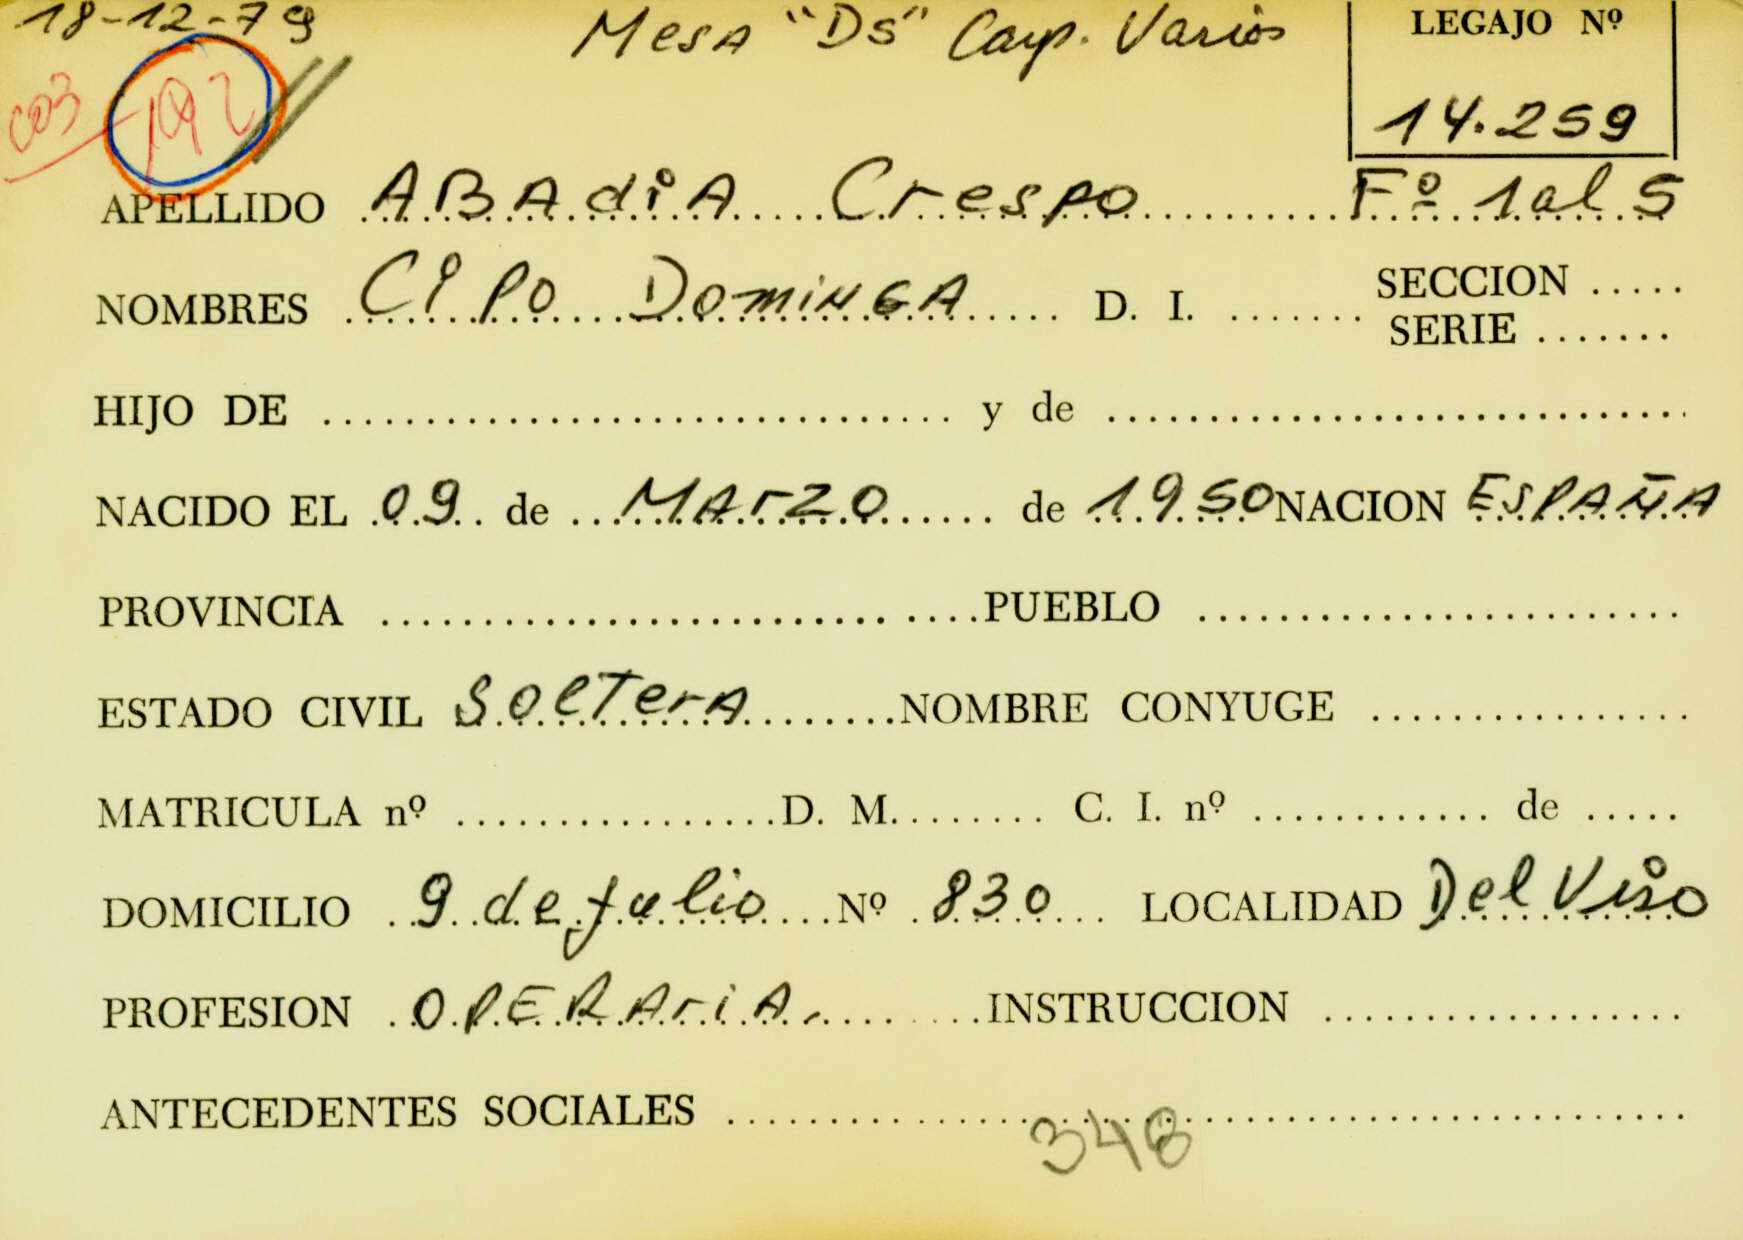 18-12-79 Mesa "Ds" Carp. Varios LEGAJO Nº
003 192 14.259
APELLIDO ABAdiA Crespo Fº 1 al 5
NOMBRES CiPO DominGA D. I. ....... SECCION .....
SERIE .......
HIJO DE .............................. y de ............................
NACIDO EL 09 de MArzo de 1950 NACION ESPAÑA
PROVINCIA ............................. PUEBLO .......................
ESTADO CIVIL SolTerA NOMBRE CONYUGE ................
MATRICULA nº ................ D. M. ....... C. I. nº ............ de .....
DOMICILIO 9 de julio Nº 830 LOCALIDAD Del Viso
PROFESION OPERAriA. INSTRUCCION ..................
ANTECEDENTES SOCIALES ...............................................
348